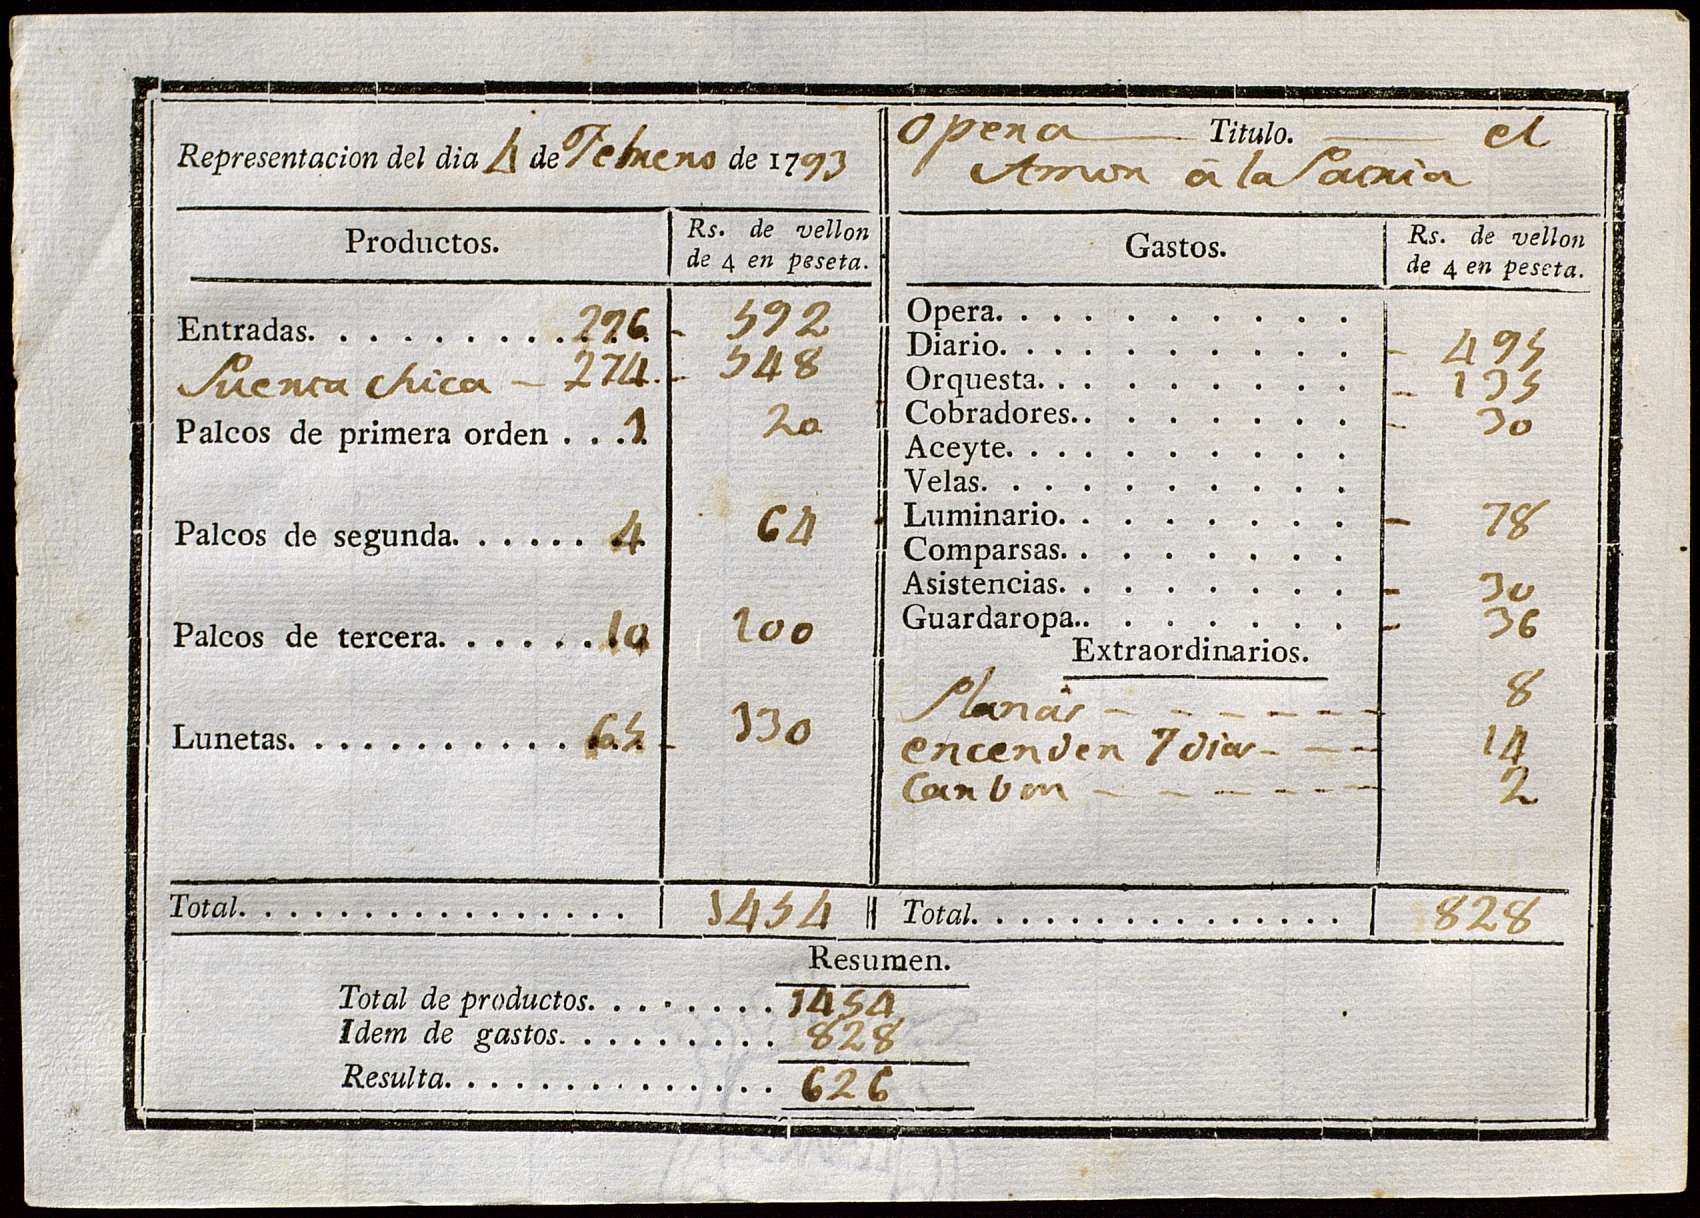 Representacion del dia 4 de Febrero de 1793
Opera Titulo. el
Amor â la Patria
Productos.
Rs. de vellon
de 4 en peseta.
Entradas. 296 - 592
Puerta chica - 274 - 548
Palcos de primera orden 1 20
Palcos de segunda. 4 64
Palcos de tercera. 10 100
Lunetas. 65 - 130
Total. 1454
Gastos.
Rs. de vellon
de 4 en peseta.
Opera.
Diario. - 495
Orquesta. - 135
Cobradores. - 30
Aceyte.
Velas.
Luminario. - 78
Comparsas.
Asistencias. - 30
Guardaropa. - 36
Extraordinarios.
8
encender 7 dias 14
Carbon 2
Total. 828
Resumen.
Total de productos. 1454
Idem de gastos. 828
Resulta. 626